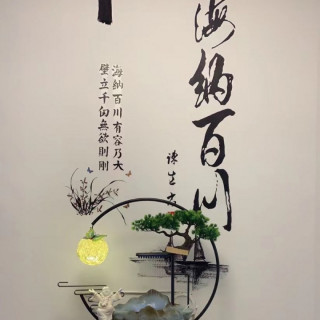 海納百川
海納百川有容乃大
壁立千仞無欲則剛